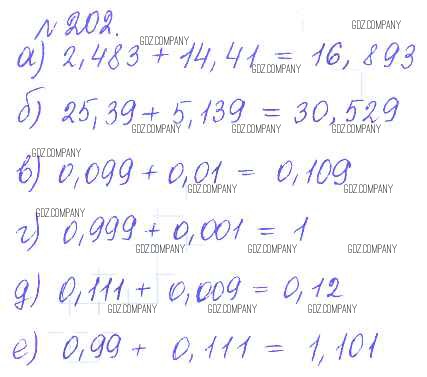 №202.
GDZ.COMPANY
а) 2,483 + 14,41 = 16,893
GDZ.COMPANY
GDZ.COMPANY
б) 25,39 + 5,139 = 30,529
GDZ.COMPANY GDZ.COMPANY GDZ.COMPANY
GDZ.COMPANY
в) 0,099 + 0,01 = 0,109
GDZ.COMPANY GDZ.COMPANY
GDZ.COMPANY
г) 0,999 + 0,001 = 1
GDZ.COMPANY GDZ.COMPANY GDZ.COMPANY
д) 0,111 + 0,009 = 0,12
GDZ.COMPANY GDZ.COMPANY GDZ.COMPANY
е) 0,99 + 0,111 = 1,101